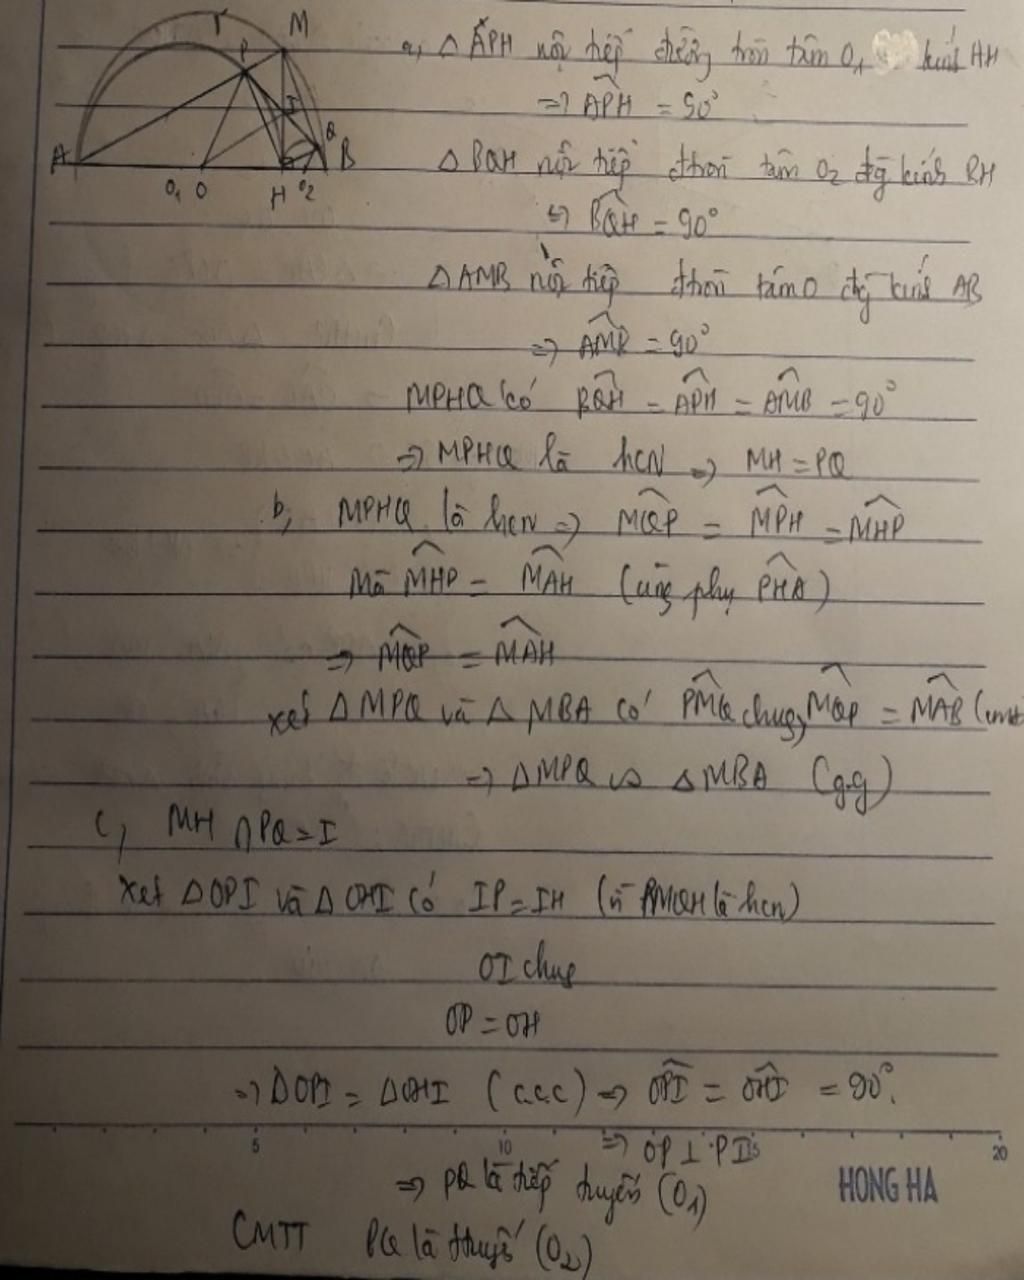 M
P
I
Q
A
B
O₁ O
H O₂
a, △ APH nội tiếp đường tròn tâm O₁ kính AH
=> APH = 90°
△ BQH nội tiếp đtròn tâm O₂ đg kính BH
=> BQH = 90°
△AMB nội tiếp đtròn tâm O đg kính AB
=> AMB = 90°
MPHQ có BQH = APH = AMB = 90°
=> MPHQ là hcN => MH = PQ
b, MPHQ là hcn => MQP = MPH = MHP
Mà MHP = MAH (cùng phụ PHA)
=> MQP = MAH
xét △MPQ và △MBA có PMQ chung, MQP = MAB (cmt
=> △MPQ ∽ △MBA (g.g)
c, MH ∩ PQ = I
Xét △OPI và △OHI có IP = IH (vì PMQH là hcn)
OI chug
OP = OH
=> △OPI = △OHI (c.c.c) => OPI = OHI = 90°.
5 10 15 20
=> OP ⊥ PI
HONG HA
=> PQ là tiếp tuyến (O₁)
CMTT PQ là ttuyế (O₂)